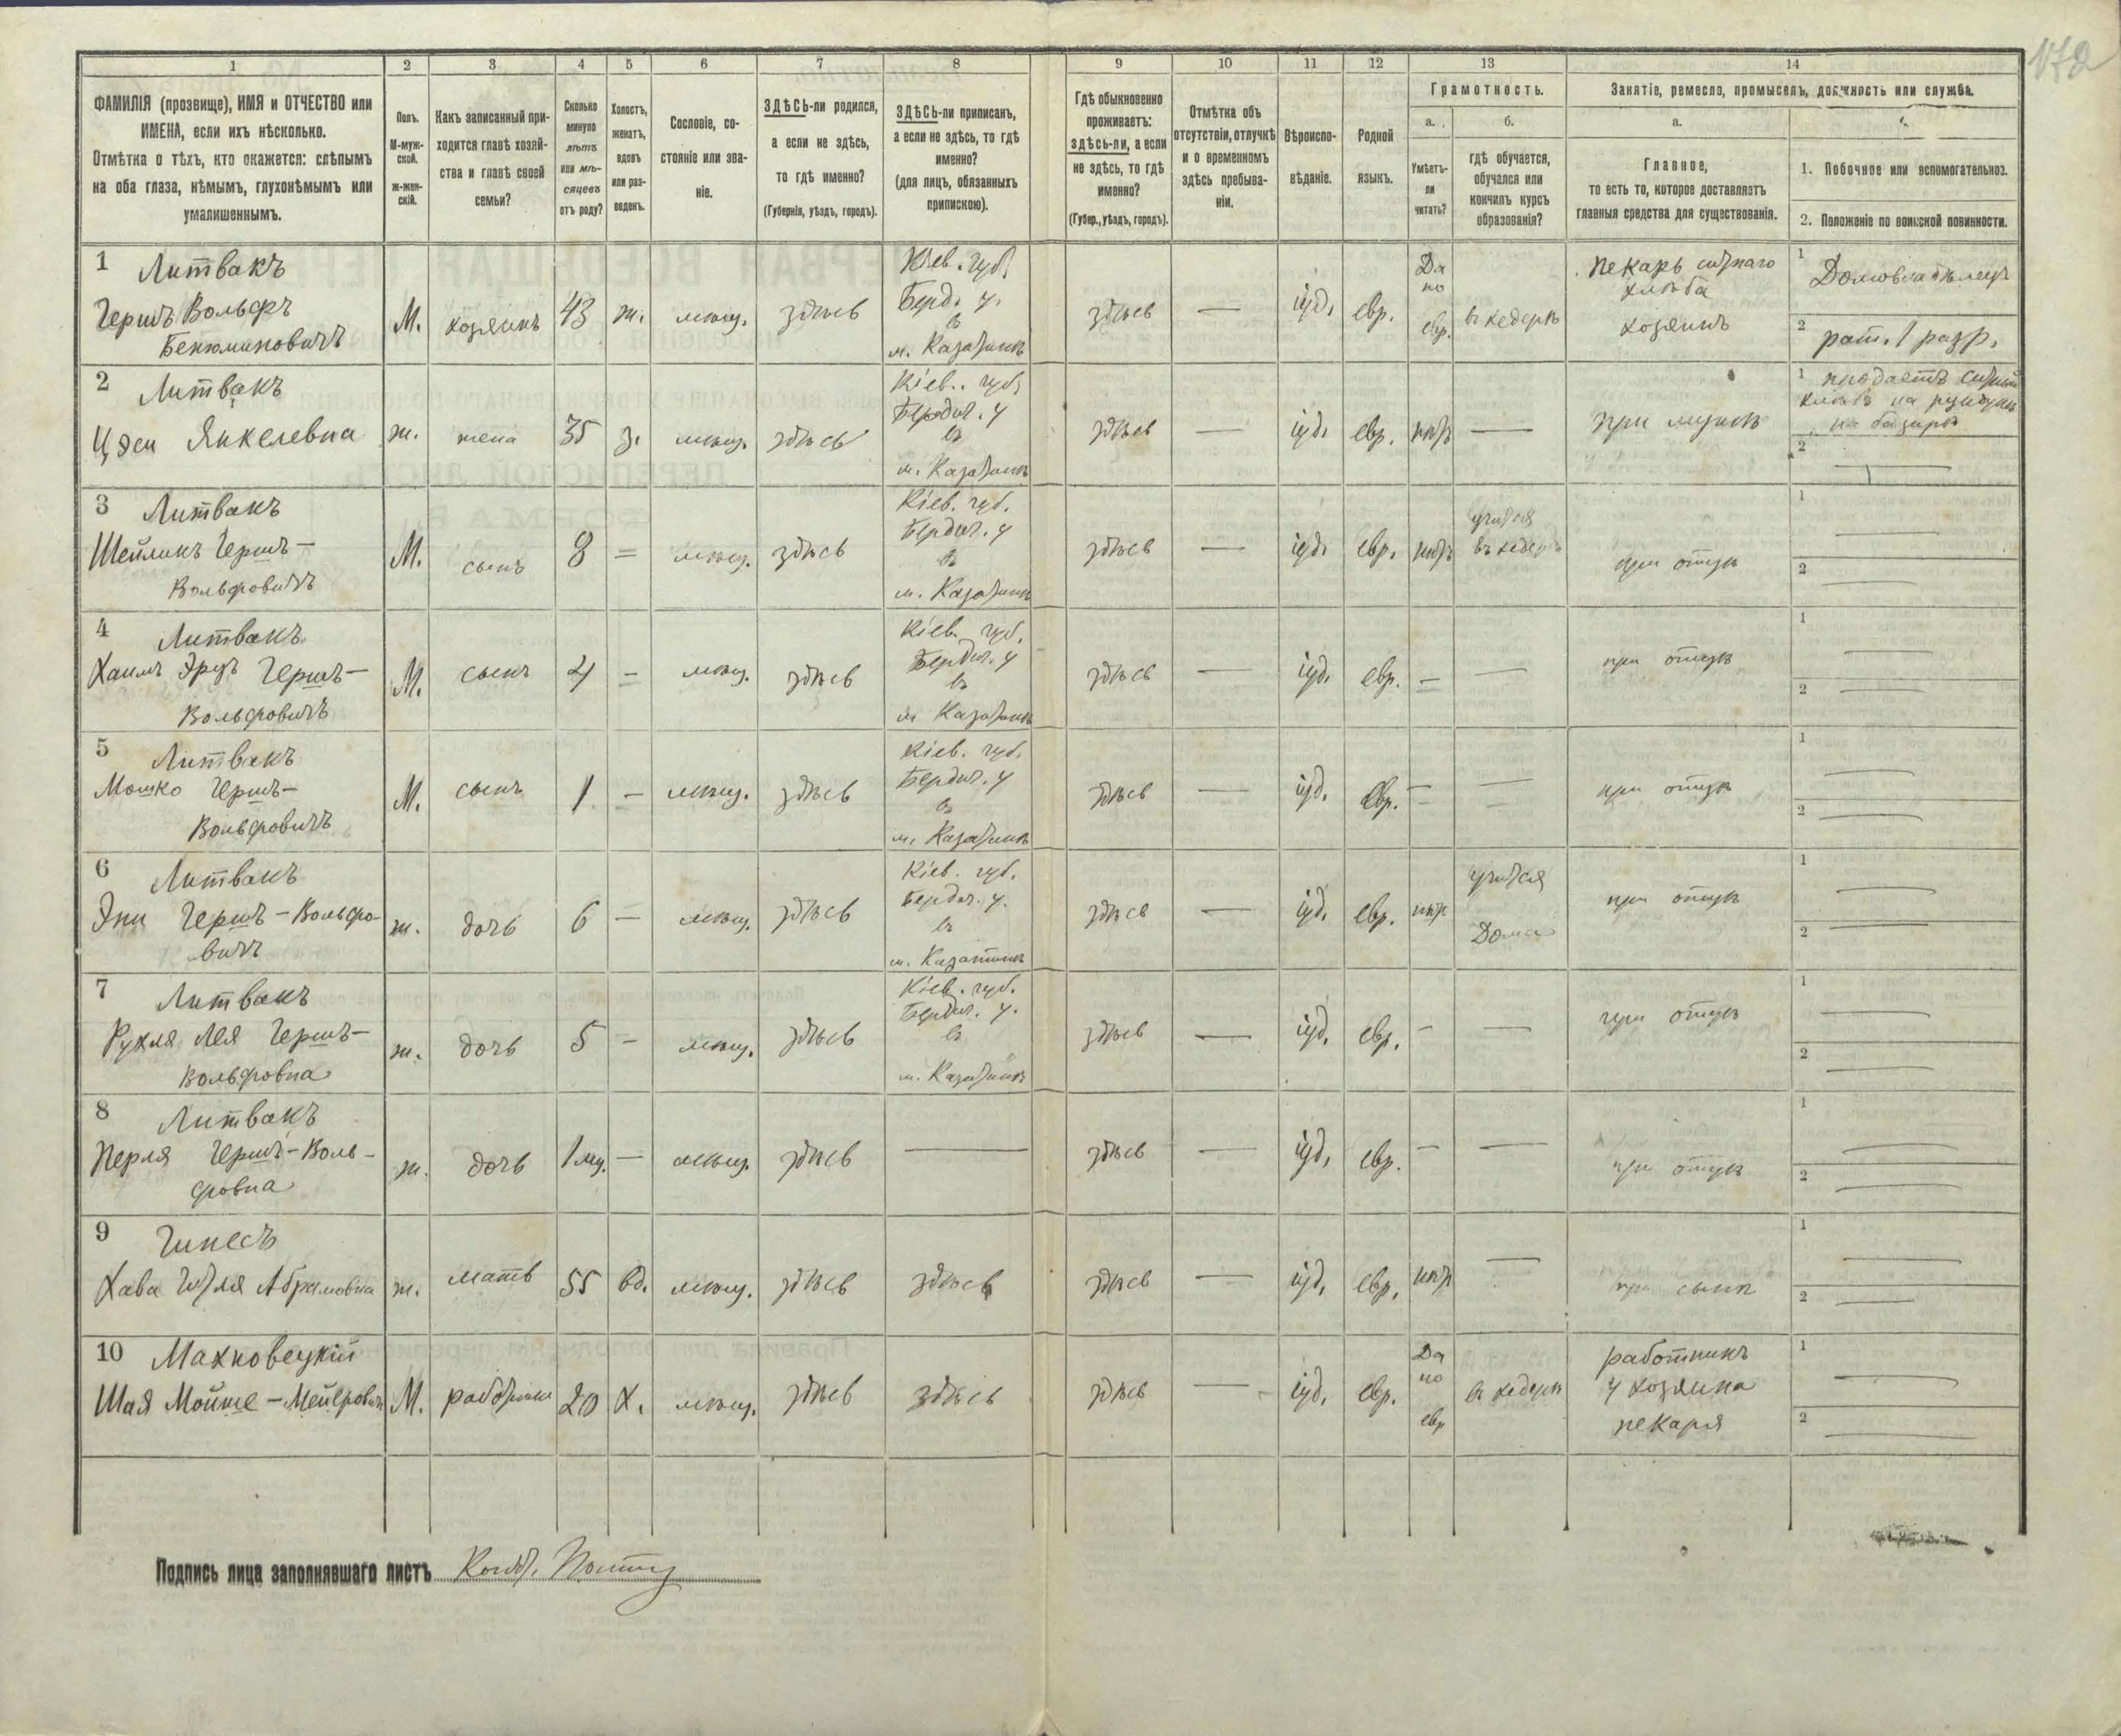 172
1 2 3 4 5 6 7 8 9 10 11 12 13 14
ФАМИЛІЯ (прозвище), ИМЯ и ОТЧЕСТВО или
ИМЕНА, если ихъ нѣсколько.
Отмѣтка о тѣхъ, кто окажется: слѣпымъ
на оба глаза, нѣмымъ, глухонѣмымъ или
умалишеннымъ.
Полъ.
М-муж-
ской.
ж-жен-
скій.
Какъ записанный при-
ходится главѣ хозяй-
ства и главѣ своей
семьи?
Сколько
минуло
лѣтъ
или мѣ-
сяцевъ
отъ роду?
Холостъ,
женатъ,
вдовъ
или раз-
веденъ.
Сословіе, со-
стояніе или зва-
ніе.
ЗДѢСЬ-ли родился,
а если не здѣсь,
то гдѣ именно?
(Губернія, уѣздъ, городъ).
ЗДѢСЬ-ли приписанъ,
а если не здѣсь, то гдѣ
именно?
(для лицъ, обязанныхъ
припискою).
Гдѣ обыкновенно
проживаетъ:
здѣсь-ли, а если
не здѣсь, то гдѣ
именно?
(Губер., уѣздъ, городъ).
Отмѣтка объ
отсутствіи, отлучкѣ
и о временномъ
здѣсь пребыва-
ніи.
Вѣроиспо-
вѣданіе.
Родной
языкъ.
Грамотность.
а.
Умѣетъ-
ли
читать?
б.
гдѣ обучается,
обучался или
кончилъ курсъ
образованія?
Занятіе, ремесло, промыселъ, должность или служба.
а.
Главное,
то есть то, которое доставляетъ
главныя средства для существованія.
1. Побочное или вспомогательное.
2. Положеніе по воинской повинности.
1 Литвакъ
Гершъ Вольфъ
Бенюминовичъ
М. хозяинъ 43 ж. мѣщ. здѣсь
Кіев. губ.
Берд. у.
въ
м. Казатинѣ
здѣсь — іуд. евр.
Да
по
евр.
въ хедерѣ
Пекарь ситнаго
хлѣба
хозяинъ
1 Домовладѣлецъ
2 рат. 1 разр.
2 Литвакъ
Цязи Янкелевна
ж. жена 35 з. мѣщ. здѣсь
Кіев. губ.
Бердич. у
въ
м. Казатинѣ
здѣсь — іуд. евр. нѣтъ —
при мужѣ
1 продаетъ ситный
хлѣбъ на рундукѣ
на базарѣ
2 —
3 Литвакъ
Шейликъ Гершъ-
Вольфовичъ
М. сынъ 8 = мѣщ. здѣсь
Кіев. губ.
Бердич. у
въ
м. Казатинѣ
здѣсь — іуд. евр. нѣтъ
учится
въ хедерѣ
при отцѣ
1 —
2 —
4 Литвакъ
Хаимъ Эрузъ Гершъ-
Вольфовичъ
М. сынъ 4 – мѣщ. здѣсь
Кіев. губ.
Бердич. у
въ
м Казатинѣ
здѣсь — іуд. евр. — —
при отцѣ
1 —
2 —
5 Литвакъ
Мошко Гершъ-
Вольфовичъ
М. сынъ 1 – мѣщ. здѣсь
Кіев. губ.
Бердич. у
въ
м. Казатинѣ
здѣсь — іуд. евр. — —
при отцѣ
1 —
2 —
6 Литвакъ
Эни Гершъ-Вольфо-
вичъ
ж. дочь 6 – мѣщ. здѣсь
Кіев. губ.
Бердич. у.
въ
м. Казатинѣ
здѣсь — іуд. евр. нѣтъ
учится
Дома
при отцѣ
1 —
2 —
7 Литвакъ
Рухля Лея Гершъ-
Вольфовна
ж. дочь 5 – мѣщ. здѣсь
Кіев. губ.
Бердич. у.
въ
м. Казатинѣ
здѣсь — іуд. евр. – —
при отцѣ
1 —
2 —
8 Литвакъ
Перля Гершъ-Воль-
фовна
ж. дочь 1 мц. — мѣщ. здѣсь —
здѣсь — іуд. евр. – —
при отцѣ
1 —
2 —
9 Гинесъ
Хава Гитля Абрамовна
ж. мать 55 вд. мѣщ. здѣсь здѣсь
здѣсь — іуд. евр. нѣтъ —
при сынѣ
1 —
2 —
10 Махновецкій
Шая Мойше-Мейеровичъ
М. работникъ 20 х. мѣщ. здѣсь здѣсь
здѣсь — іуд. евр.
Да
по
евр
въ хедерѣ
работникъ
у хозяина
пекаря
1 —
2 —
Подпись лица заполнявшаго листъ